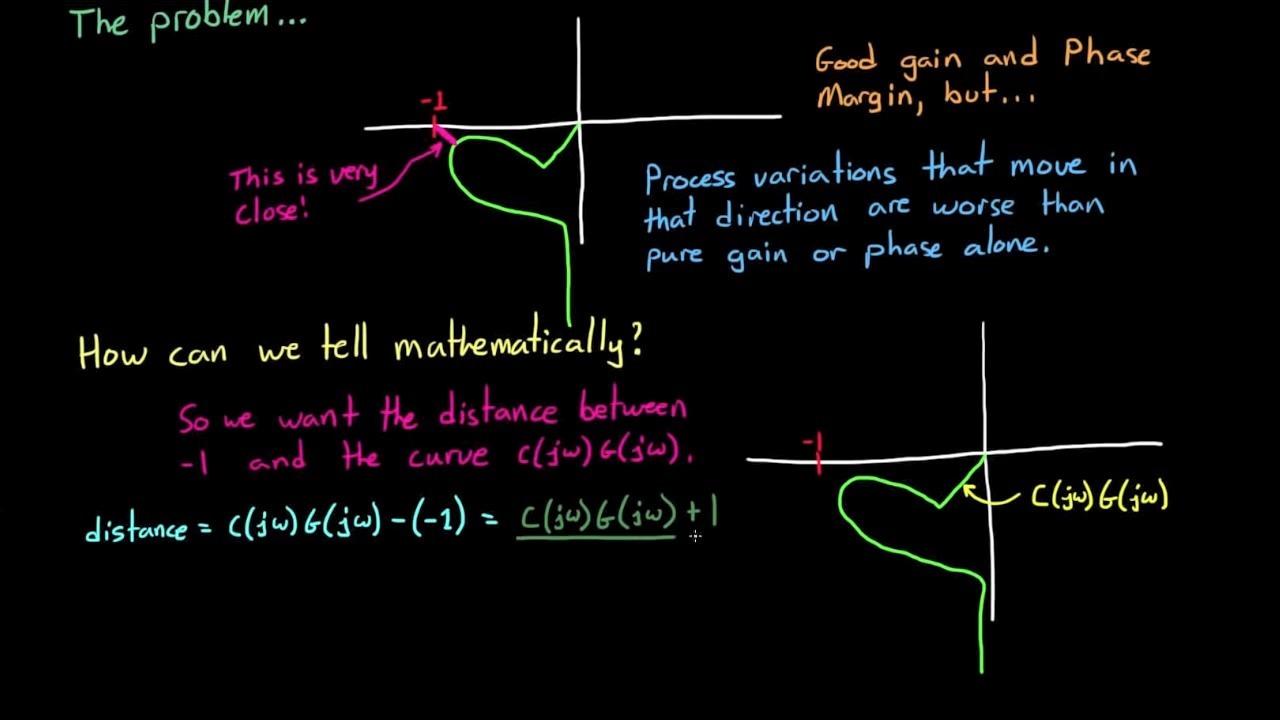 The problem...
Good gain and Phase
Margin, but...
-1
This is very
close!
Process variations that move in
that direction are worse than
pure gain or phase alone.
How can we tell mathematically?
So we want the distance between
-1 and the curve C(jω)G(jω).
distance = C(jω)G(jω)-(-1) = C(jω)G(jω)+1
-1
C(jω)G(jω)